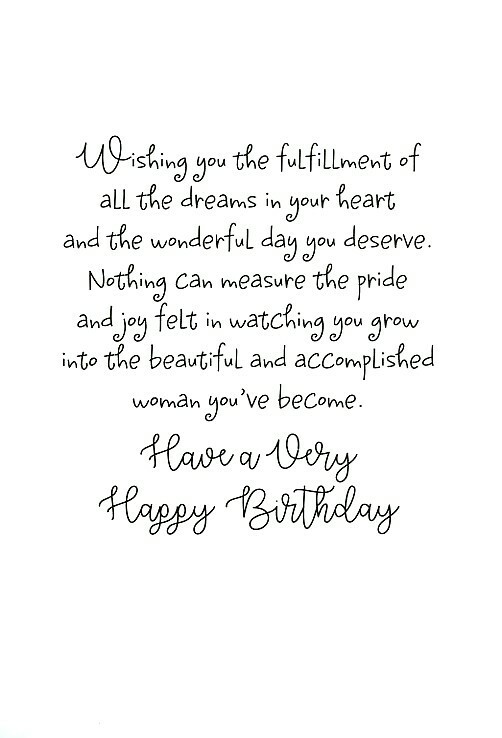 Wishing you the fulfillment of
all the dreams in your heart
and the wonderful day you deserve.
Nothing can measure the pride
and joy felt in watching you grow
into the beautiful and accomplished
woman you've become.
Have a Very
Happy Birthday